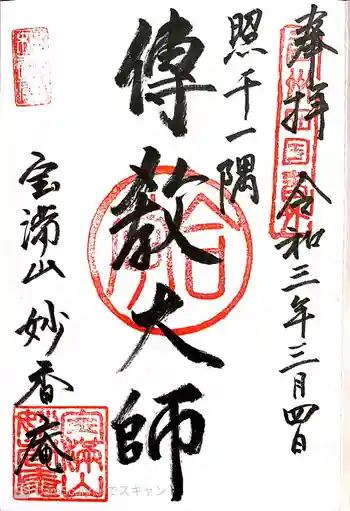 奉拝 令和三年三月四日
照千一隅
傳教大師
宝満山 妙香庵
でスキャン